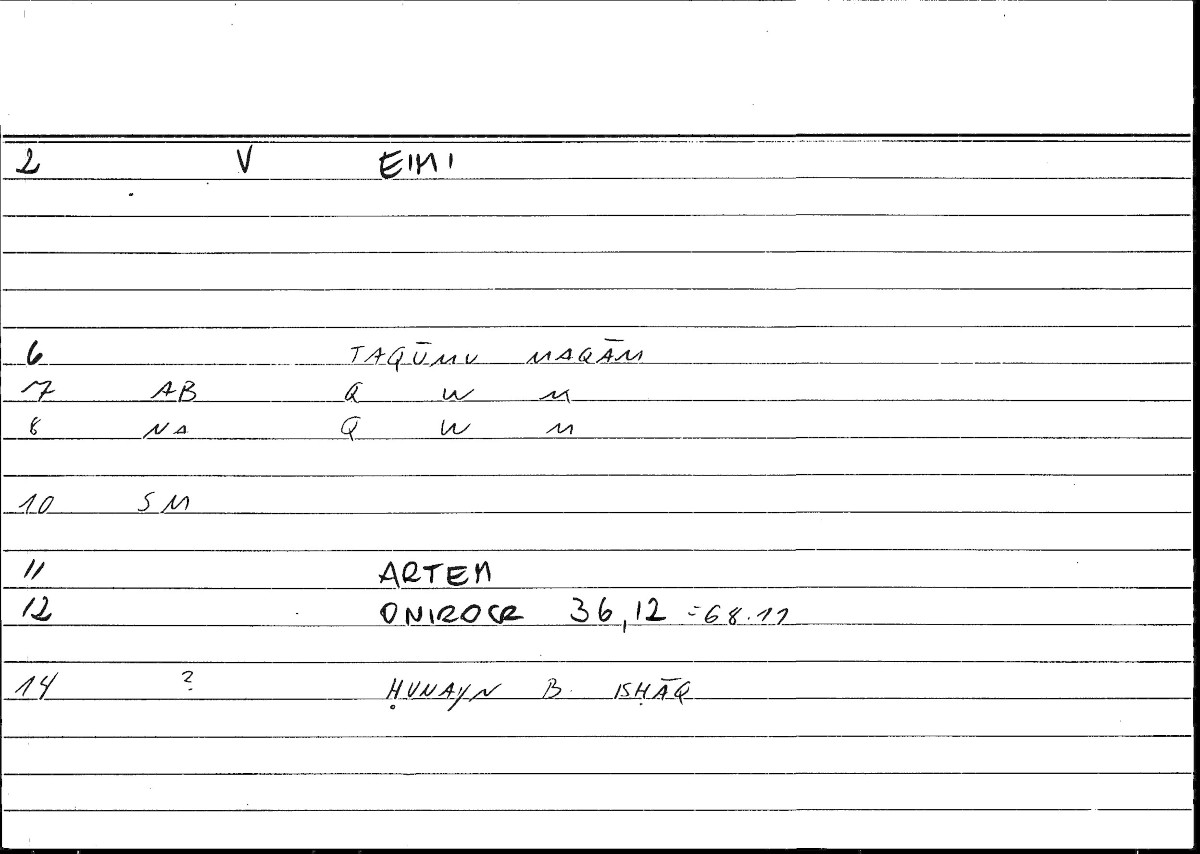 2 V EIMI
6 TAQŪMU MAQĀM
7 AB Q W M
8 NA Q W M
10 SM
11 ARTEM
12 ONIROCR 36,12 = 68.11
14 ? ḤUNAYN B. ISḤĀQ